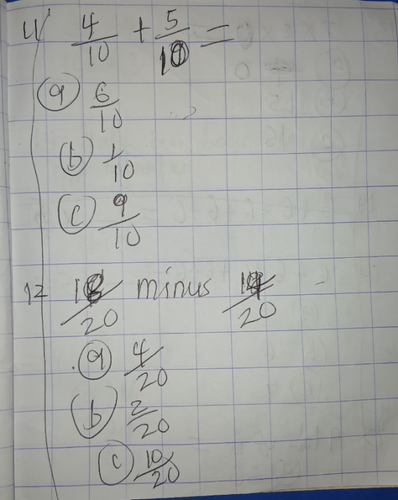 11 4/10 + 5/10 =
(a) 6/10
(b) 1/10
(c) 9/10
12 18/20 minus 14/20
(a) 4/20
(b) 2/20
(c) 10/20